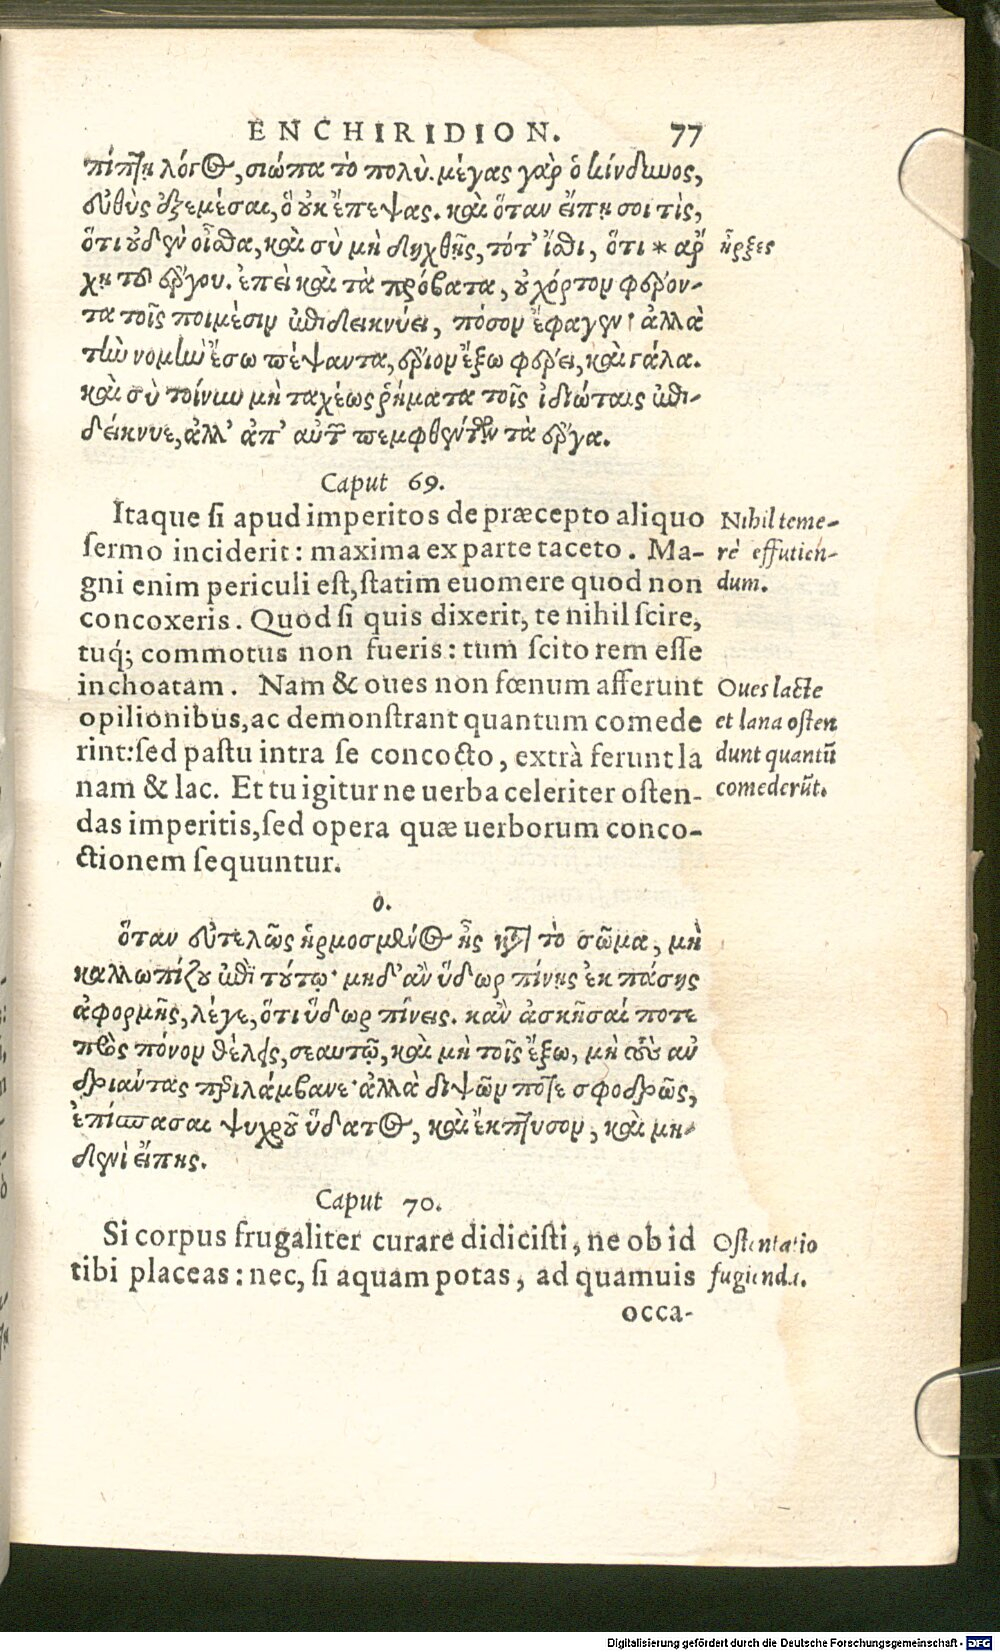 ENCHIRIDION. 77
πίπτῃ λόγος, σιώπα τὸ πολύ. μέγας γὰρ ὁ κίνδυνος,
εὐθὺς ἐξεμέσαι, ὃ οὐκ ἔπεψας. καὶ ὅταν εἴπῃ σοι τὶς,
ὅτι οὐδὲν οἶσθα, καὶ σὺ μὴ δηχθῇς, τότ' ἴσθι, ὅτι * ἄρ
ἦρξες
χῃ τοῦ ἔργου. ἐπεὶ καὶ τὰ πρόβατα, οὐ χόρτον φέρον-
τα τοῖς ποιμέσιν ἐπιδεικνύει, πόσον ἔφαγεν· ἀλλὰ
τὴν νομὴν ἔσω πέψαντα, ἔριον ἔξω φέρει, καὶ γάλα.
καὶ σὺ τοίνυν μὴ ταχέως ῥήματα τοῖς ἰδιώταις ἐπι-
δείκνυε, ἀλλ' ἀπ' αὐτῶν πεμφθέντων τὰ ἔργα.
Caput 69.
Itaque ſi apud imperitos de præcepto aliquo
ſermo inciderit: maxima ex parte taceto. Ma-
gni enim periculi eſt, ſtatim euomere quod non
concoxeris. Quod ſi quis dixerit, te nihil ſcire,
tuq́; commotus non fueris: tum ſcito rem eſſe
inchoatam. Nam & oues non fœnum afferunt
opilionibus, ac demonſtrant quantum comede
rint: ſed paſtu intra ſe concocto, extrà ferunt la
nam & lac. Et tu igitur ne uerba celeriter oſten-
das imperitis, ſed opera quæ uerborum conco-
ctionem ſequuntur.
Nihil teme-
rè effutien-
dum.
Oues lacte
et lana oſten
dunt quantũ
comederũt.
ο.
ὅταν εὐτελῶς ἡρμοσμένος ᾖς κατὰ τὸ σῶμα, μὴ
καλλωπίζου ἐπὶ τούτῳ· μηδ' ἂν ὕδωρ πίνῃς ἐκ πάσης
ἀφορμῆς, λέγε, ὅτι ὕδωρ πίνεις. κἂν ἀσκῆσαί ποτε
πρὸς πόνον θέλῃς, σεαυτῷ, καὶ μὴ τοῖς ἔξω, μὴ τοὺς ἀν
δριάντας περιλάμβανε· ἀλλὰ διψῶν ποτε σφοδρῶς,
ἐπίσπασαι ψυχροῦ ὕδατος, καὶ ἔκπτυσον, καὶ μη-
δενὶ εἴπῃς.
Caput 70.
Si corpus frugaliter curare didiciſti, ne ob id
tibi placeas: nec, ſi aquam potas, ad quamuis
Oſtentatio
fugienda.
occa-
Digitalisierung gefördert durch die Deutsche Forschungsgemeinschaft - DFG